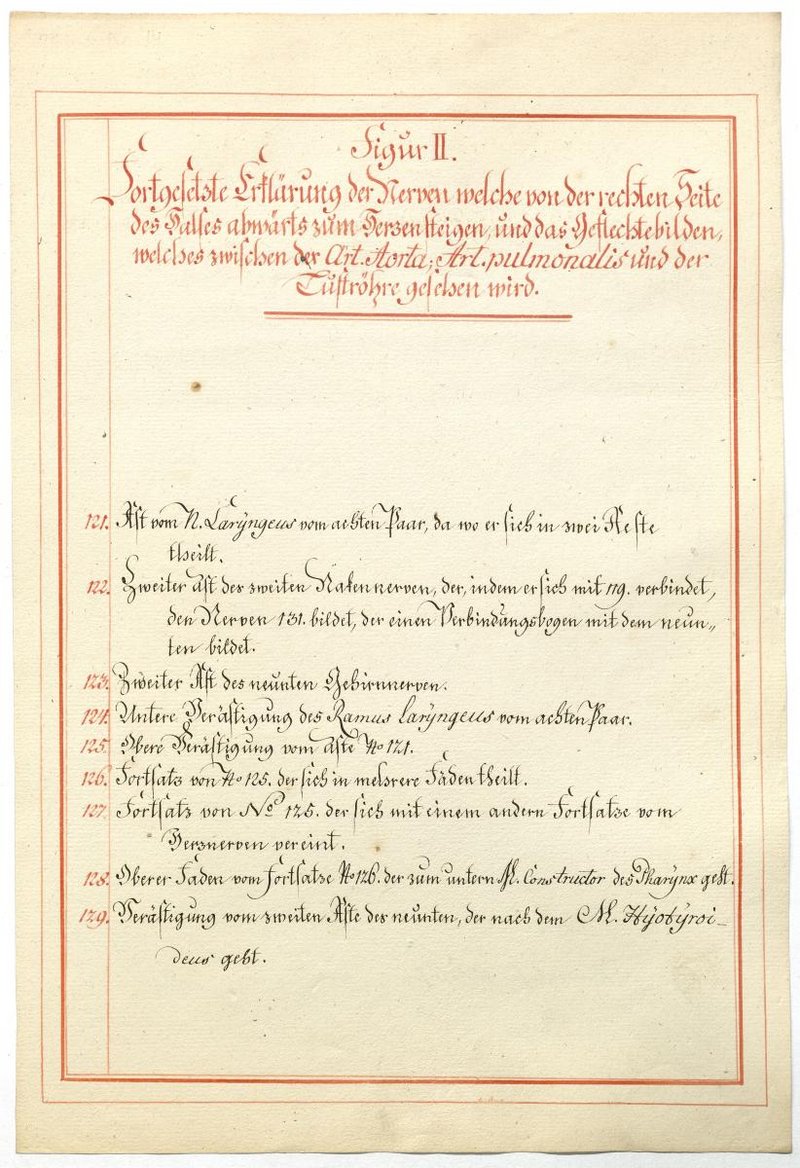 Figur II.
Fortgesetzte Erklärung der Nerven welche von der rechten Seite
des Halses abwärts zum Herzen steigen, und das Geflechte bilden,
welches zwischen der Art. Aorta; Art. pulmonalis und der
Luftröhre gesehen wird.
121. Ast vom N. Laryngeus vom achten Paar, da wo er sich in zwei Aeste
theilt.
122. Zweiter Ast des zweiten Nakennerven, der, indem er sich mit 119. verbindet,
den Nerven 131. bildet, der einen Verbindungsbogen mit dem neun„
ten bildet.
123. Zweiter Ast des neunten Gehirnnerven.
124. Untere Verästigung des Ramus Laryngeus vom achten Paar.
125. Obere Verästigung vom Aste No 121.
126. Fortsatz von No 125. der sich in mehrere Fäden theilt.
127. Fortsatz von No 125. der sich mit einem andern Fortsatze vom
Herznerven vereint.
128. Oberer Faden vom Fortsatze No 126. der zum untern M. Constructor des Pharynx geht.
129. Verästigung vom zweiten Aste des neunten, der nach dem M. Hyotyroi-
deus geht.